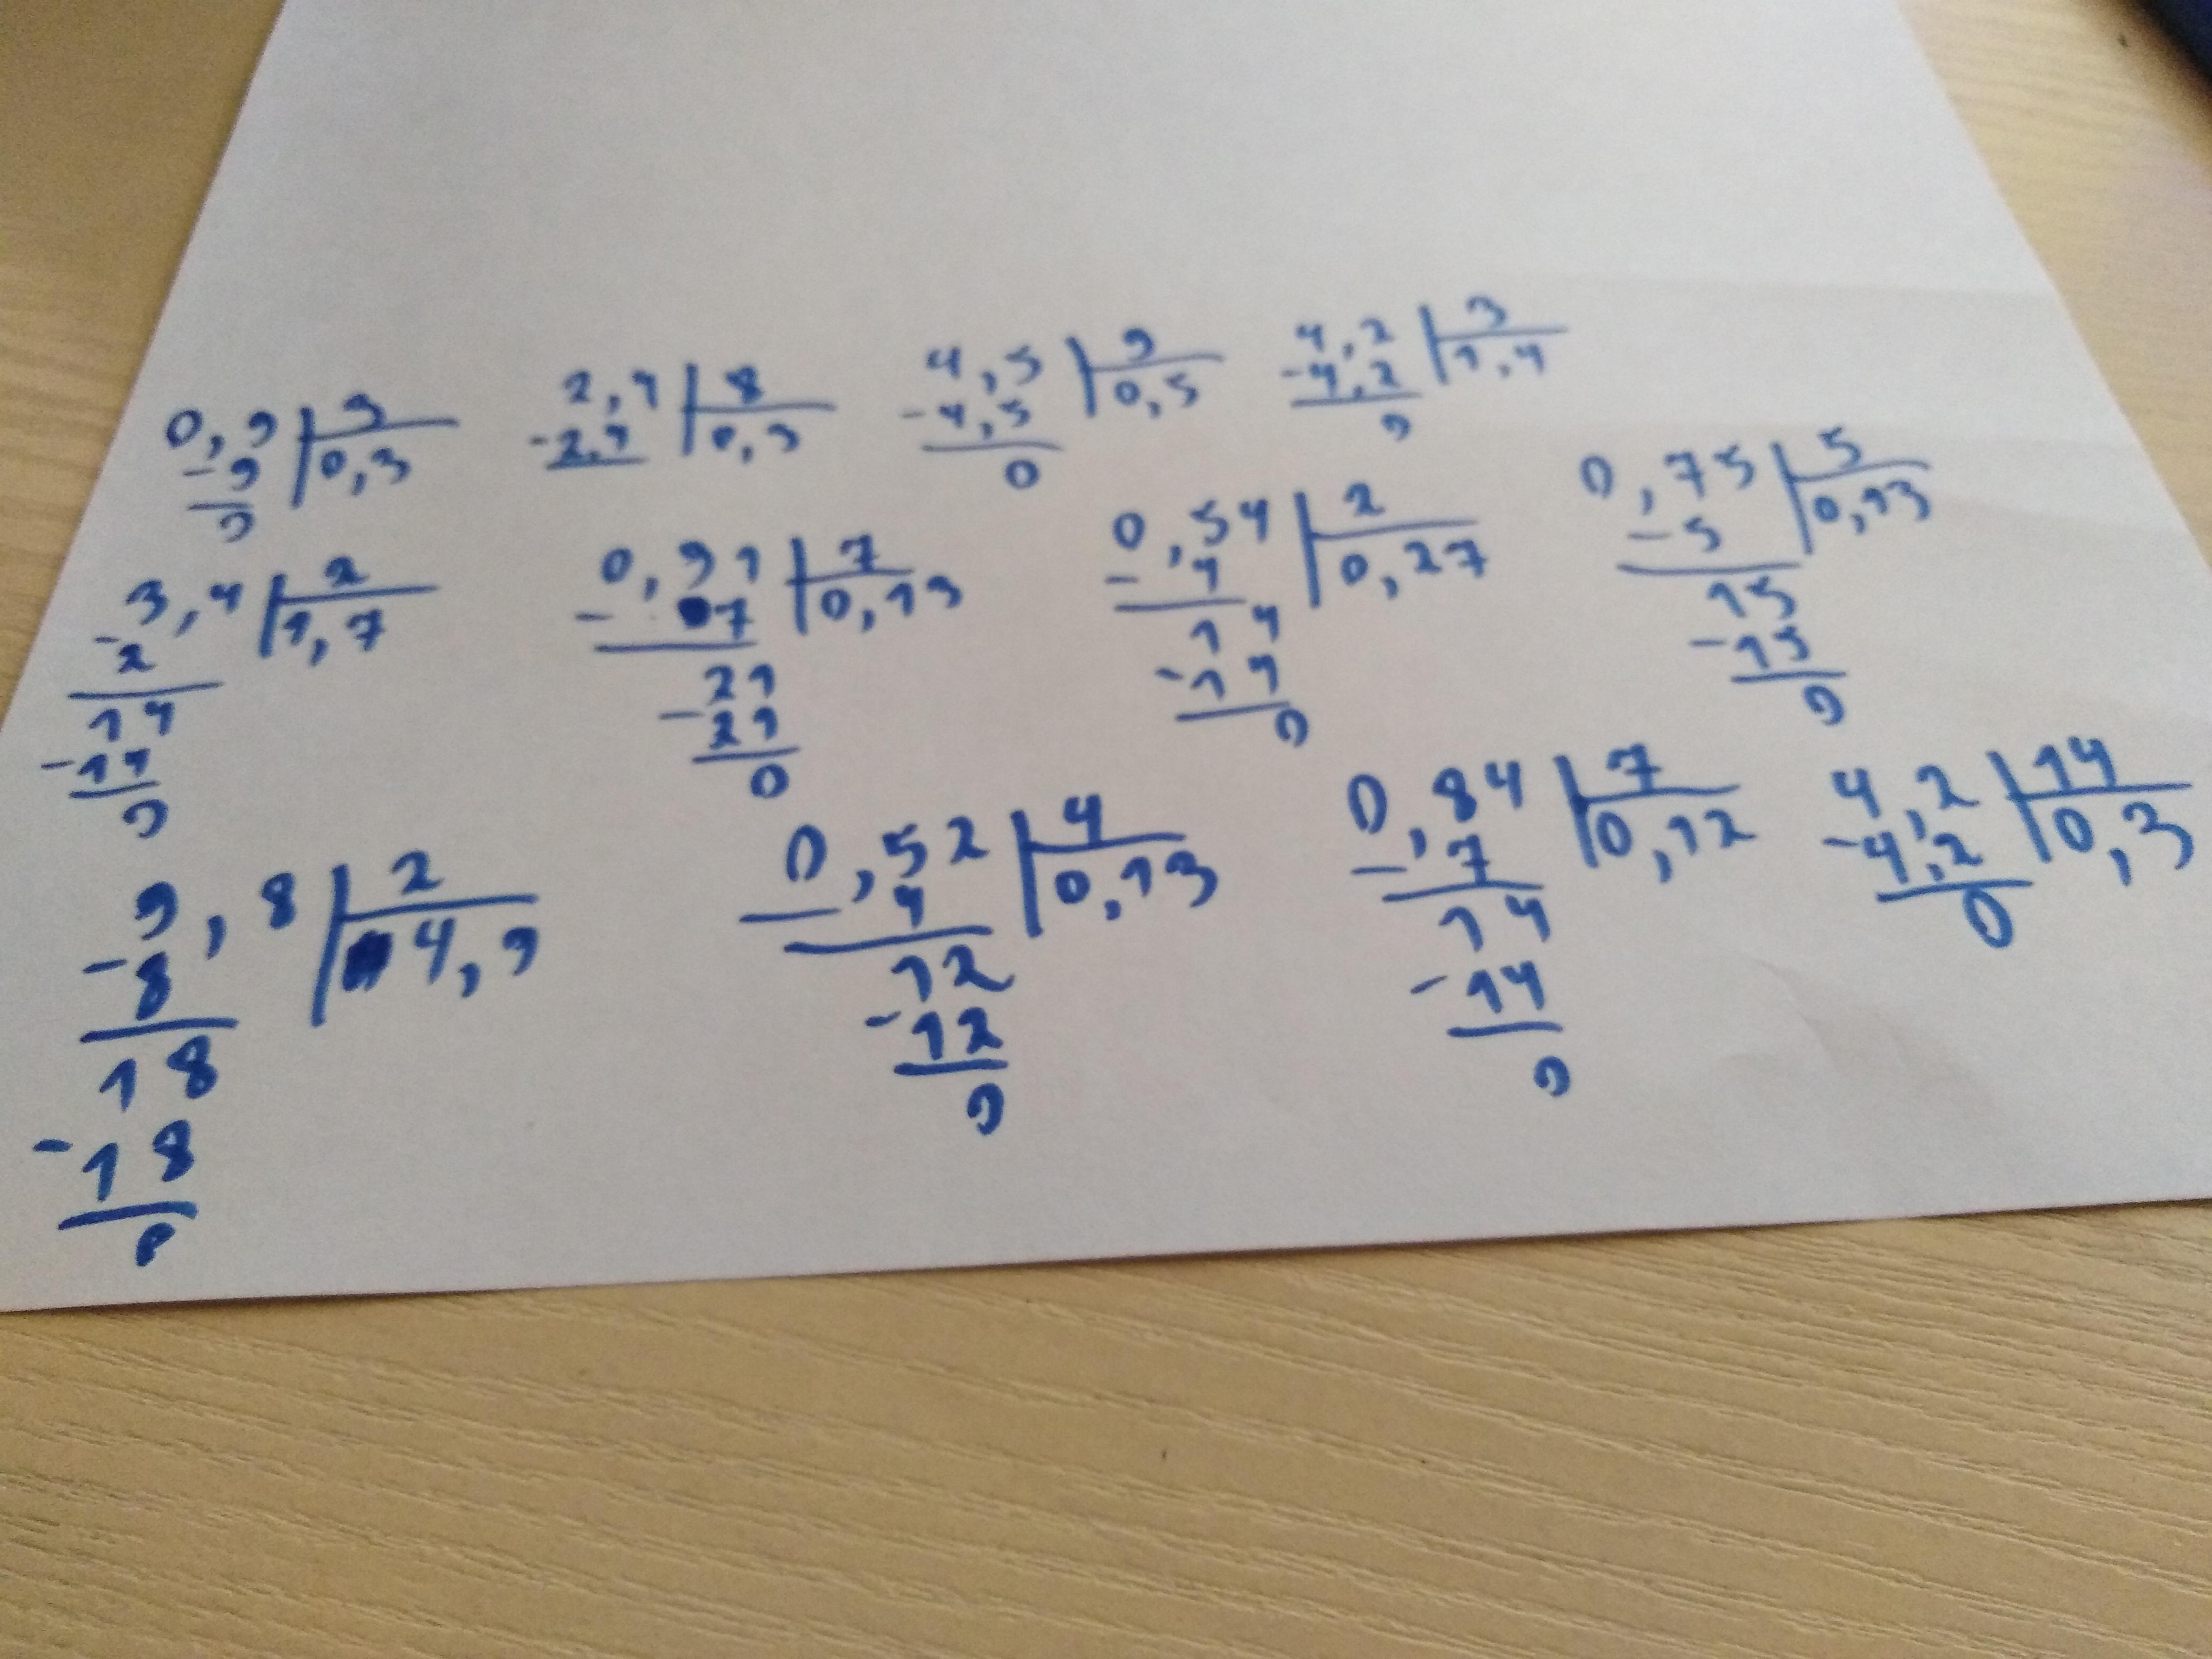 0,9 3 2,4 8 4,5 9 4,2 3
-9 0,3 -2,4 0,3 -4,5 0,5 -4,2 1,4
0 0 0
3,4 2 0,91 7 0,54 2 0,75 5
-2 1,7 -7 0,13 -4 0,27 -5 0,13
14 21 14 15
-14 -21 -14 -15
0 0 0 0
9,8 2 0,52 4 0,84 7 4,2 14
-8 4,9 -4 0,13 -7 0,12 -4,2 0,3
18 12 14 0
-18 -12 -14
0 0 0